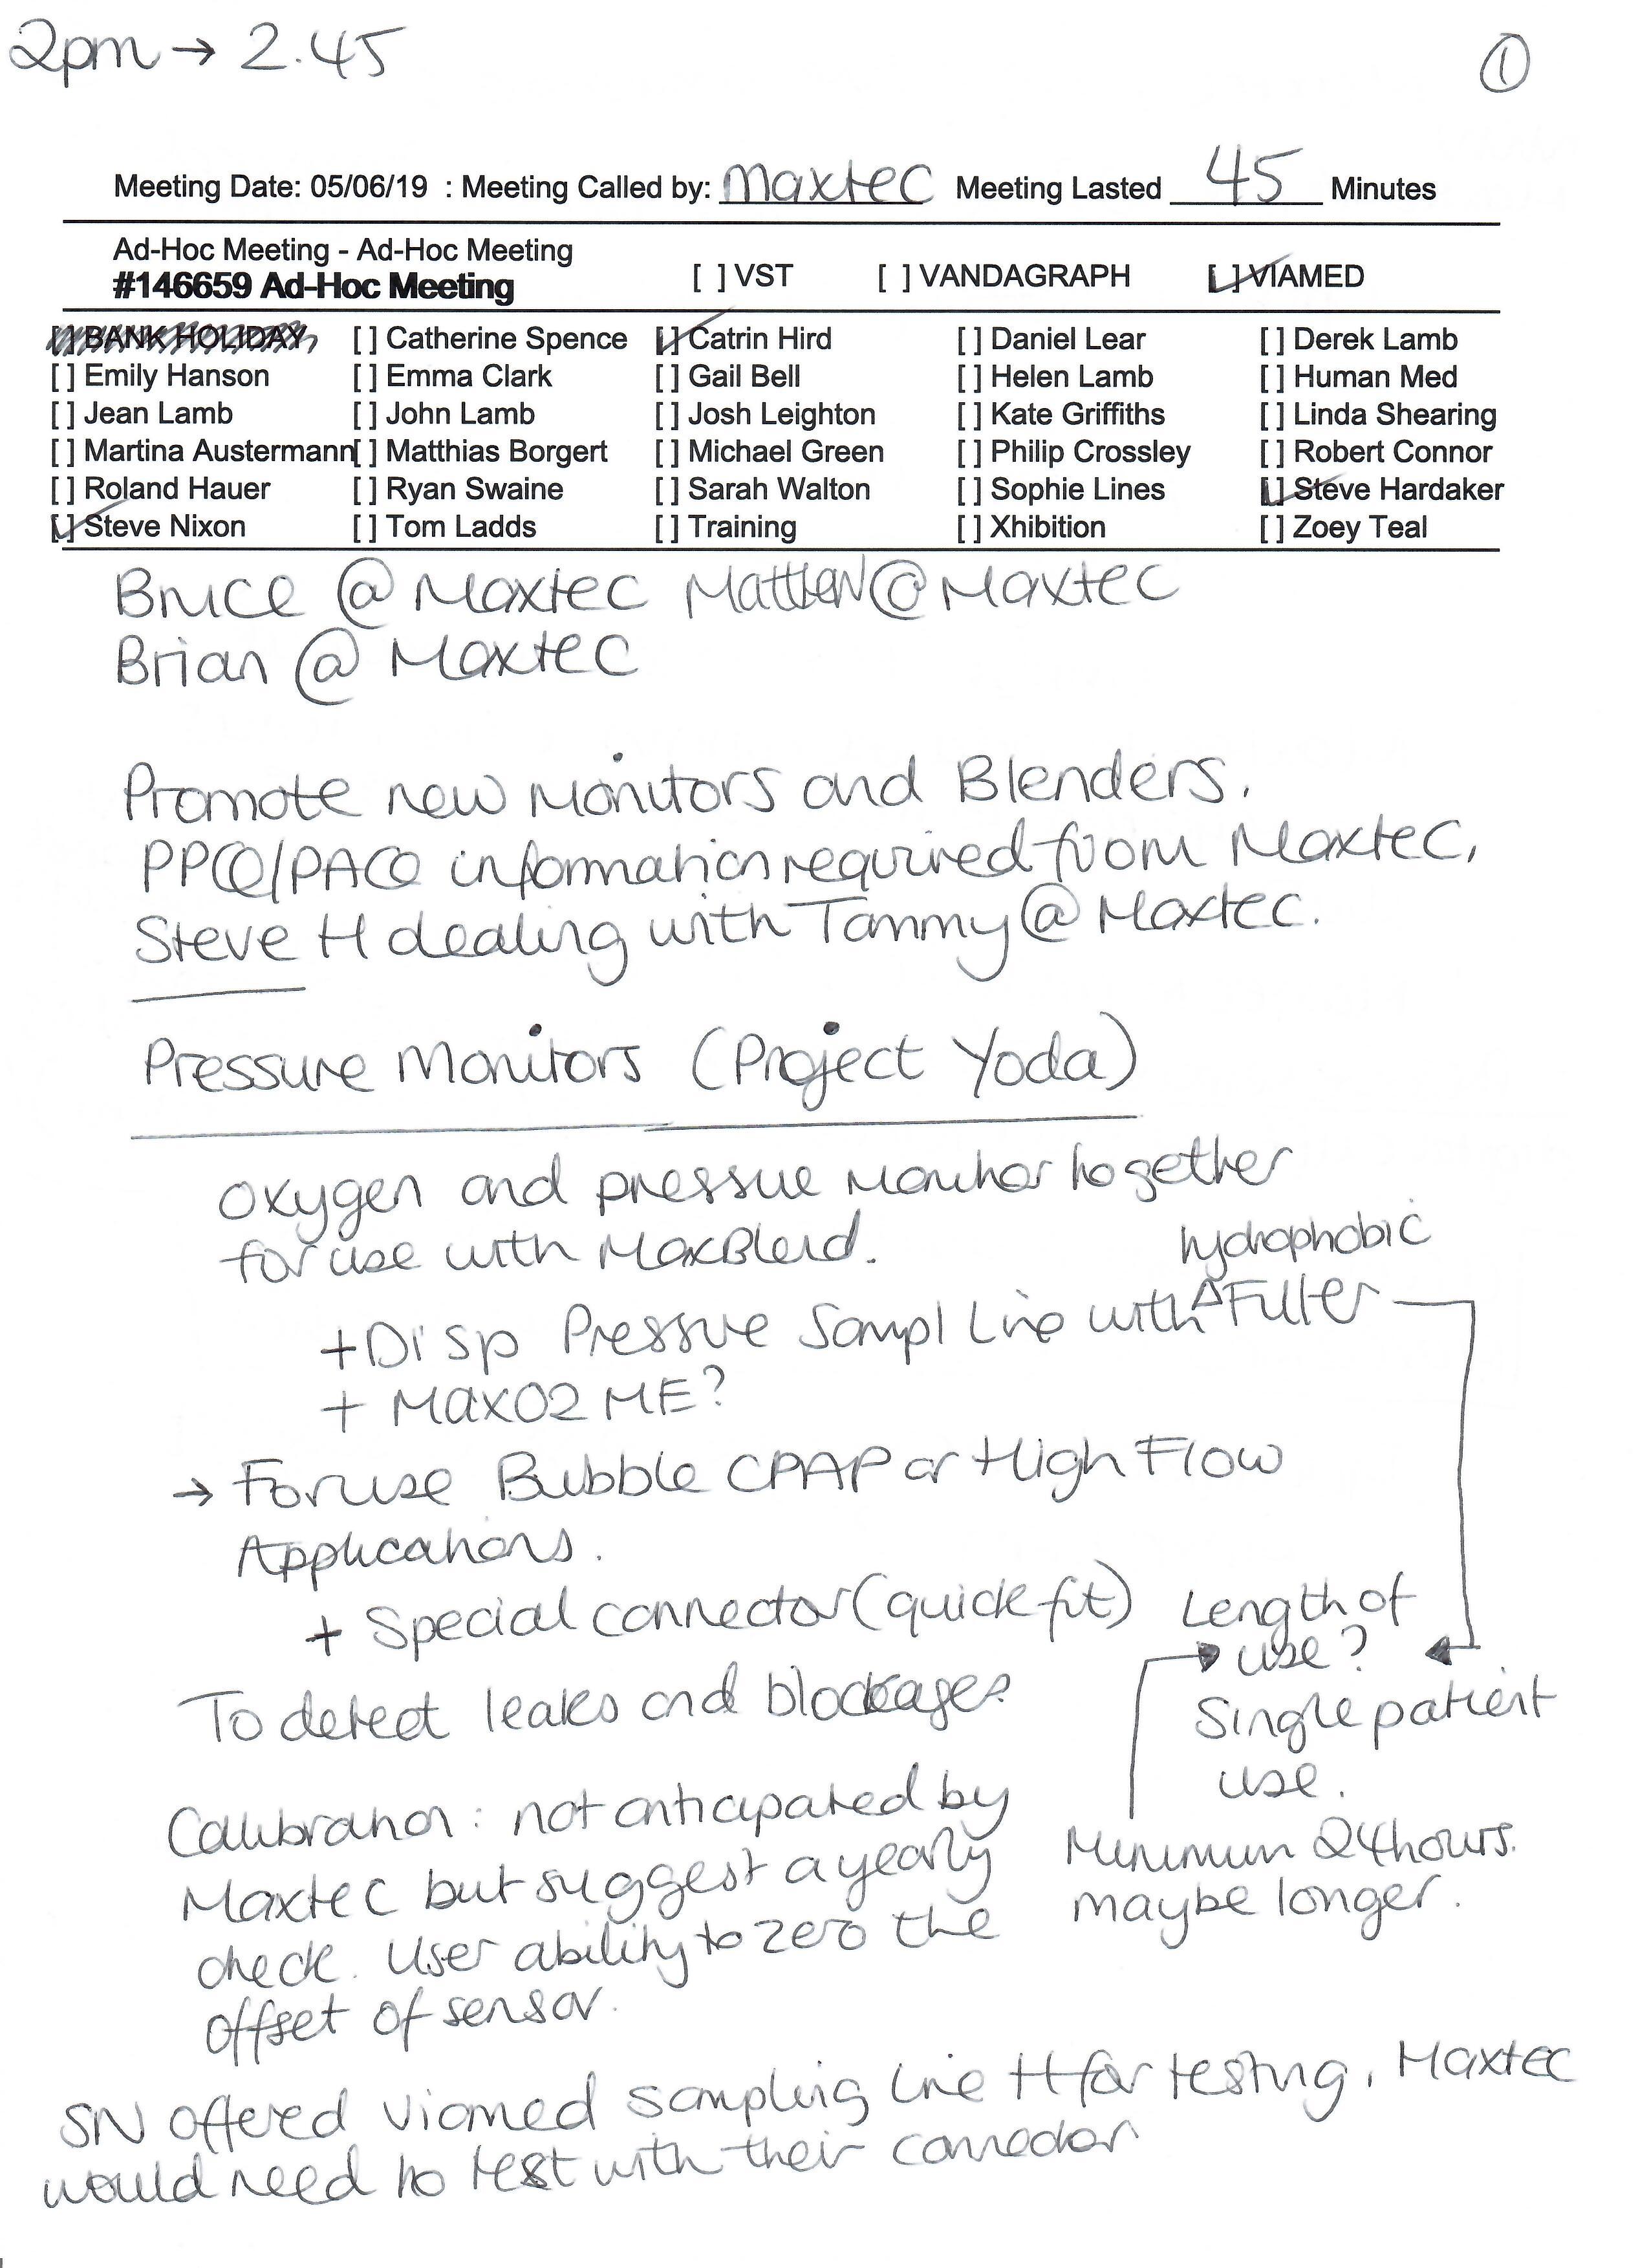 2pm → 2.45
①
Meeting Date: 05/06/19 : Meeting Called by: Maxtec Meeting Lasted 45 Minutes
Ad-Hoc Meeting - Ad-Hoc Meeting
#146659 Ad-Hoc Meeting [ ] VST [ ] VANDAGRAPH [✓] VIAMED
[ ] BANK HOLIDAY [ ] Catherine Spence [✓] Catrin Hird [ ] Daniel Lear [ ] Derek Lamb
[ ] Emily Hanson [ ] Emma Clark [ ] Gail Bell [ ] Helen Lamb [ ] Human Med
[ ] Jean Lamb [ ] John Lamb [ ] Josh Leighton [ ] Kate Griffiths [ ] Linda Shearing
[ ] Martina Austermann [ ] Matthias Borgert [ ] Michael Green [ ] Philip Crossley [ ] Robert Connor
[ ] Roland Hauer [ ] Ryan Swaine [ ] Sarah Walton [ ] Sophie Lines [✓] Steve Hardaker
[✓] Steve Nixon [ ] Tom Ladds [ ] Training [ ] Xhibition [ ] Zoey Teal
Bruce @ Maxtec Matthew @ Maxtec
Brian @ Maxtec
Promote new Monitors and Blenders.
PPQ/PAQ information required from Maxtec,
Steve H dealing with Tammy @ Maxtec.
Pressure Monitors (Project Yoda)
oxygen and pressure monitor together
for use with MaxBlend.
hydrophobic
+ Disp Pressure Sampl Line with Filter
+ MAXO2 ME?
→ For use Bubble CPAP or High Flow
Applications.
+ Special connector (quick fit)
Length of
use?
To detect leaks and blockages
Single patient
use.
Calibration: not anticipated by
Maxtec but suggest a yearly
check. User ability to zero the
offset of sensor.
Minimum 24hours.
maybe longer.
SN offered Viamed sampling line for testing, Maxtec
would need to test with their connector